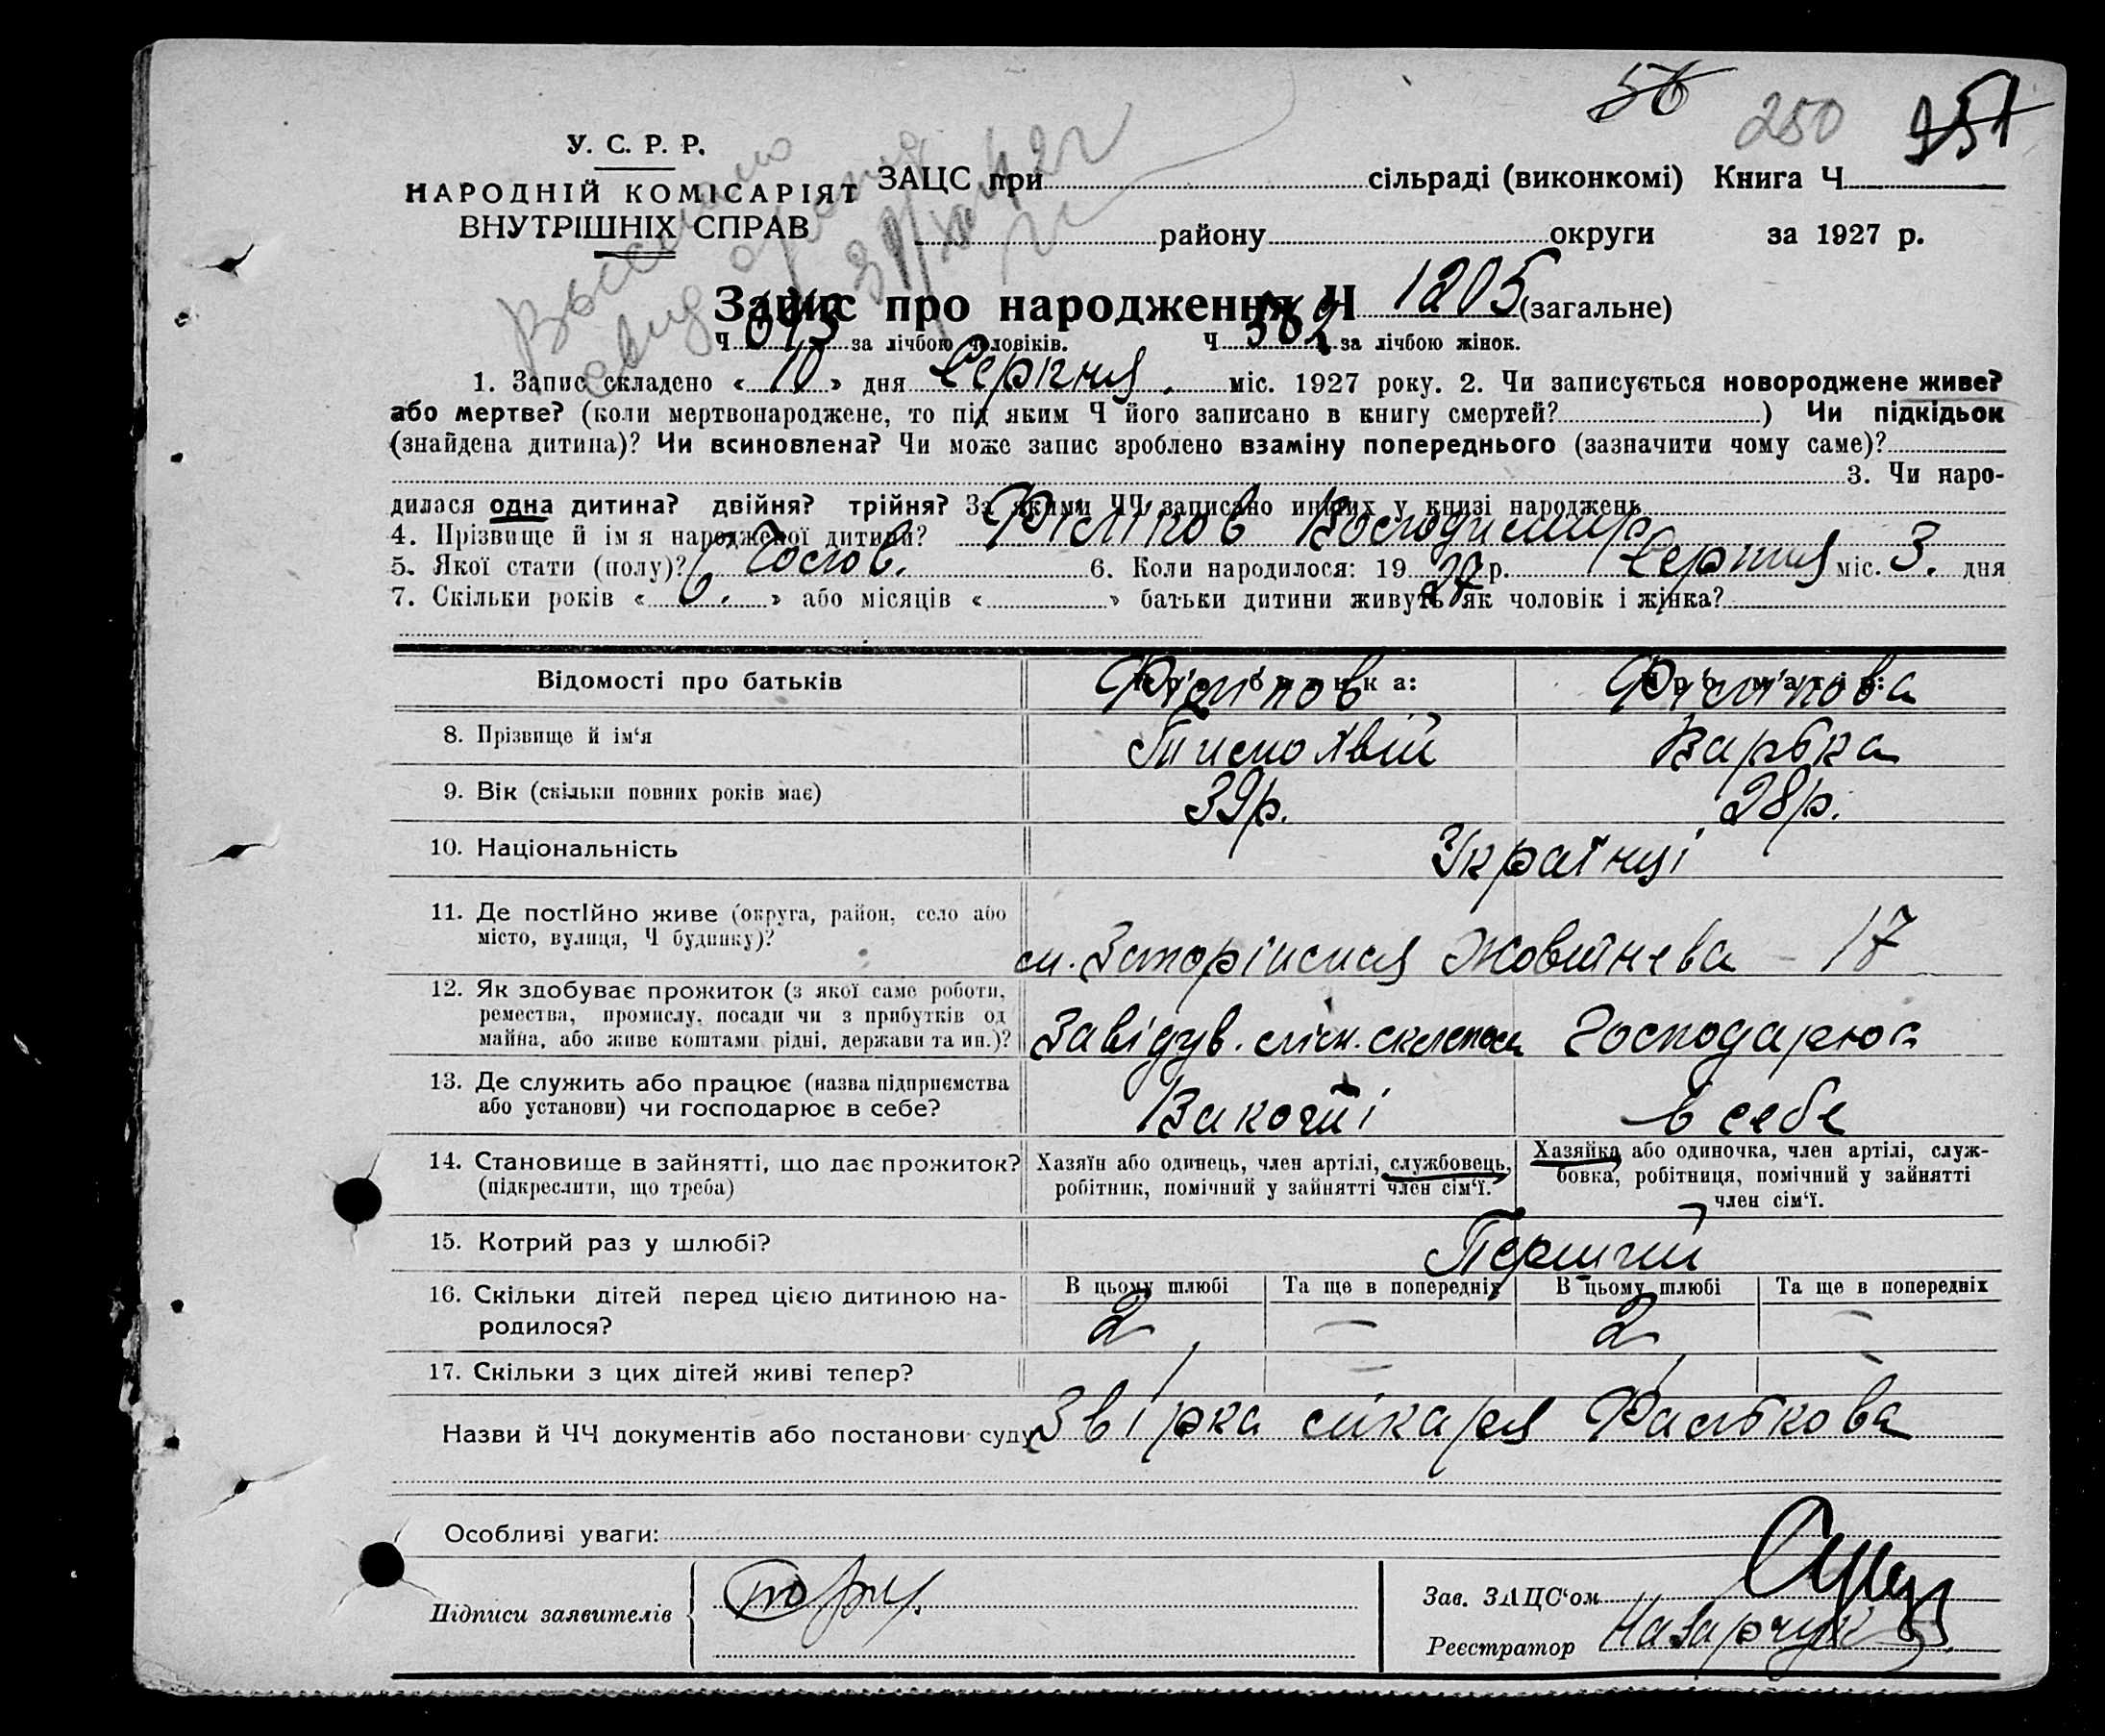 56 250 251
У. С. Р. Р.
НАРОДНІЙ КОМІСАРІЯТ
ВНУТРІШНІХ СПРАВ
ЗАЦС при сільраді (виконкомі) Книга Ч
району округи за 1927 р.
Запис про народження Ч 1205 (загальне)
Ч 643 за лічбою чоловіків. Ч 562 за лічбою жінок.
1. Запис складено « 10 » дня Серпня міс. 1927 року. 2. Чи записується новороджене живе?
або мертве? (коли мертвонароджене, то під яким Ч його записано в книгу смертей? ) Чи підкідьок
(знайдена дитина)? Чи всиновлена? Чи може запис зроблено взаміну попереднього (зазначити чому саме)?
3. Чи наро-
дилася одна дитина? двійня? трійня? За якими ЧЧ записано инших у книзі народжень
4. Прізвище й ім я народженої дитини? Філіпов Володимир
5. Якої стати (полу)? Чолов. 6. Коли народилося: 19 27 р. Серпня міс. 3. дня
7. Скільки років « 6. » або місяців « » батьки дитини живуть як чоловік і жінка?
Відомості про батьків Філіпов Філіпова
8. Прізвище й ім‘я Тимохвій Варька
9. Вік (скільки повних років має) 39р. 28р.
10. Національність Українці
11. Де постійно живе (округа, район, село або
місто, вулиця, Ч будинку)? Жовтнева - 17
12. Як здобуває прожиток (з якої саме роботи,
ремества, промислу, посади чи з прибутків од
майна, або живе коштами рідні, держави та ин.)? Завідув. лісн. складом Господарює
13. Де служить або працює (назва підприємства
або установи) чи господарює в себе? в себе
14. Становище в зайнятті, що дає прожиток?
(підкреслити, що треба)
Хазяїн або одинець, член артілі, службовець,
робітник, помічний у зайнятті член сім‘ї.
Хазяйка або одиночка, член артілі, служ-
бовка, робітниця, помічний у зайнятті
член сім‘ї.
15. Котрий раз у шлюбі? Перший
16. Скільки дітей перед цією дитиною на-
родилося?
В цьому шлюбі Та ще в попередніх В цьому шлюбі Та ще в попередніх
2 — 2 —
17. Скільки з цих дітей живі тепер? 1 — 1 —
Назви й ЧЧ документів або постанови суду Звірка лікаря Фалькова
Особливі уваги:
Підписи заявителів
Зав. ЗАЦС‘ом
Реєстратор Назарчук